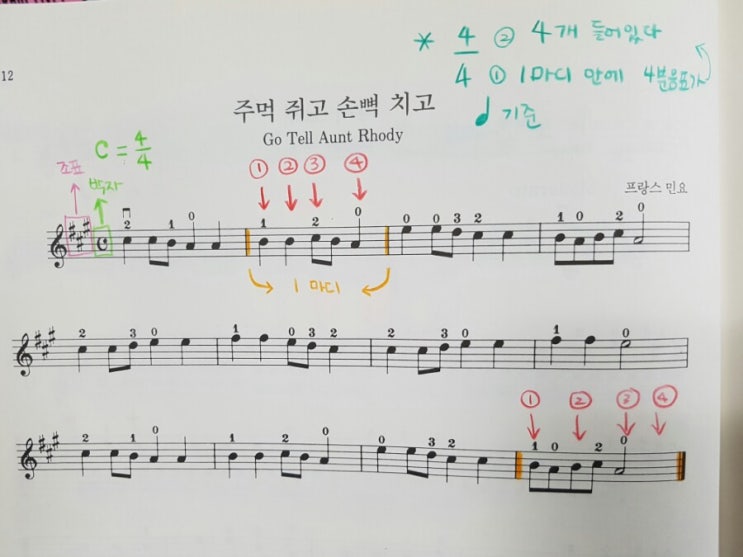 * 4/4 ② 4개 들어있다
① 1마디 안에 4분음표가
♩ 기준
12
주먹 쥐고 손뼉 치고
Go Tell Aunt Rhody
C = 4/4
조표
박자
① ② ③ ④
프랑스 민요
2 1 0 1 2 0 0 0 3 2 1 0 2 0
1 마디
2 3 0 1 0 3 2 2 3 0 1 0
① ② ③ ④
2 1 0 1 2 0 0 3 2 1 0 2 0